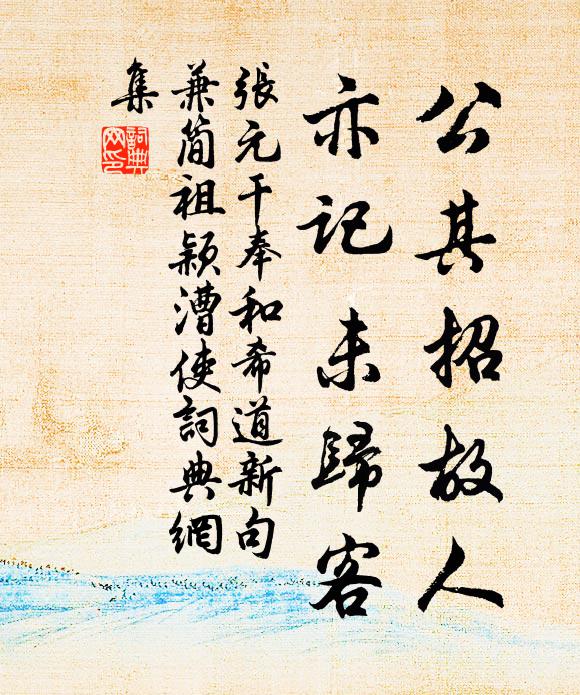 公其招故人
亦記未歸客
張元干奉和希道新句
兼简祖颖漕使詞典網
集
詞典网印